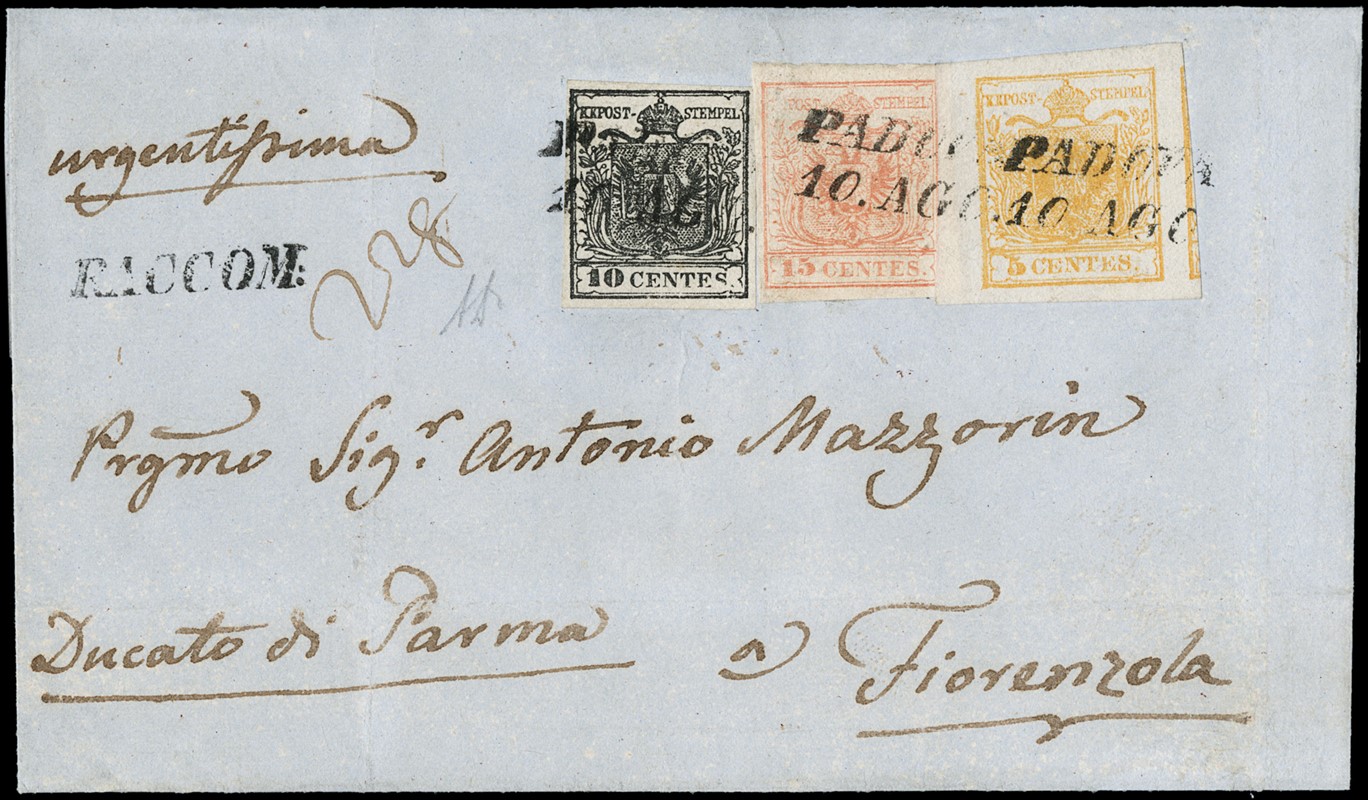 urgentissima
RACCOM:
228
KKPOST-STEMPEL
10 CENTES.
KKPOST-STEMPEL
15 CENTES.
KKPOST-STEMPEL
5 CENTES.
PADOVA
10. AGO.
PADOVA
10. AGO
Prgmo Sigr. Antonio Mazzorin
Ducato di Parma
a Fiorenzola